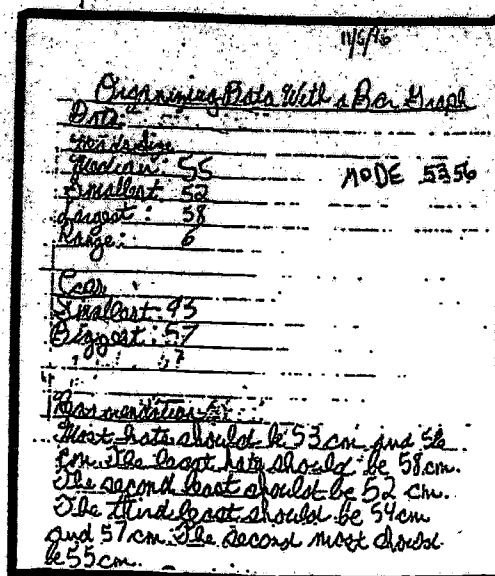 11/6/96
Organizing Data With a Bar Graph
Data
Median: 55 MODE 53 56
Smallest 52
Largest: 58
Range: 6
Smallest: 43
Biggest: 57
Most hats should be 53 cm and 56
cm. The least hats should be 58 cm.
The second least should be 52 cm.
The third least should be 54 cm
and 57 cm. The second most should
be 55 cm.